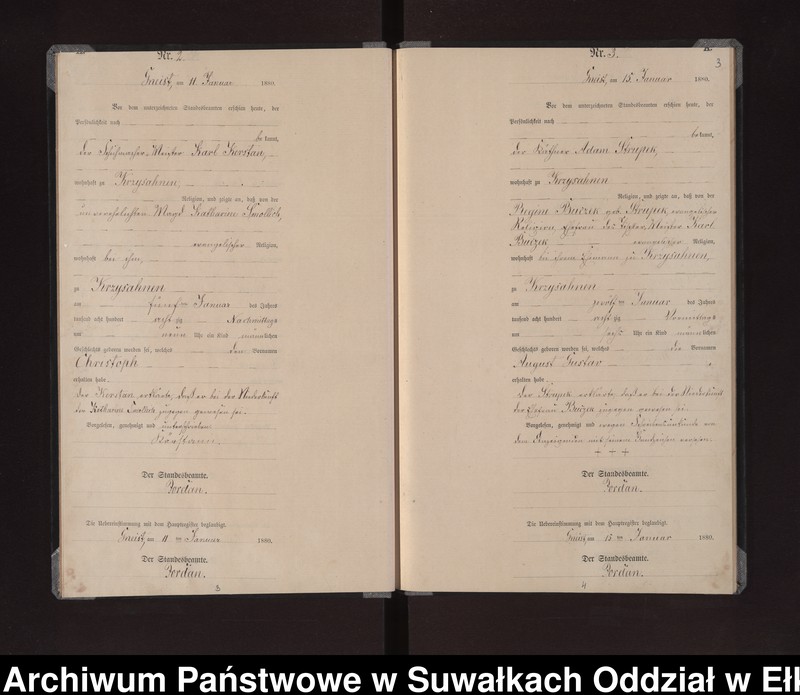 Nr. 2.
Gneist, am 11. Januar 1880.
Vor dem unterzeichneten Standesbeamten erschien heute, der
Persönlichkeit nach
be kannt,
der Schuhmacher-Meister Karl Kerstan,
wohnhaft zu Krzysahnen,
Religion, und zeigte an, daß von der
unverehelichten Magd Katharine Smollich,
evangelischer Religion,
wohnhaft bei ihm,
zu Krzysahnen
am fünften Januar des Jahres
tausend acht hundert acht zig Nachmittags
um neun Uhr ein Kind männlichen
Geschlechts geboren worden sei, welches den Vornamen
Christoph
erhalten habe.
Der Kerstan erklärte, daß er bei der Niederkunft
der Katharine Smollich zugegen gewesen sei.
Vorgelesen, genehmigt und unterschrieben
Der Standesbeamte.
Jordan.
Die Uebereinstimmung mit dem Hauptregister beglaubigt.
Gneist, am 11 ten Januar 1880.
Der Standesbeamte.
Jordan.
3
Nr. 3.
3
Gneist, am 15. Januar 1880.
Vor dem unterzeichneten Standesbeamten erschien heute, der
Persönlichkeit nach
be kannt,
der Käthner Adam Skrupek,
wohnhaft zu Krzysahnen
Religion, und zeigte an, daß von der
Regine Buczek geb. Skrupek, evangelischer
Religion, Ehefrau des Meister Karl
Buczek evangelischer Religion,
wohnhaft bei ihrem Ehemann zu Krzysahnen,
zu Krzysahnen
am Januar des Jahres
tausend acht hundert acht zig Vormittags
um sechs Uhr ein Kind männlichen
Geschlechts geboren worden sei, welches die Vornamen
August Gustav
erhalten habe.
Der Skrupek erklärte, daß er bei der Niederkunft
der Ehefrau Buczek zugegen gewesen sei.
Vorgelesen, genehmigt und wegen Schreibensunkunde von
dem Anzeigenden mit seinem Handzeichen versehen.
+ + +
Der Standesbeamte.
Jordan.
Die Uebereinstimmung mit dem Hauptregister beglaubigt.
Gneist, am 15 ten Januar 1880.
Der Standesbeamte.
Jordan.
4
Archiwum Państwowe w Suwałkach Oddział w Eł